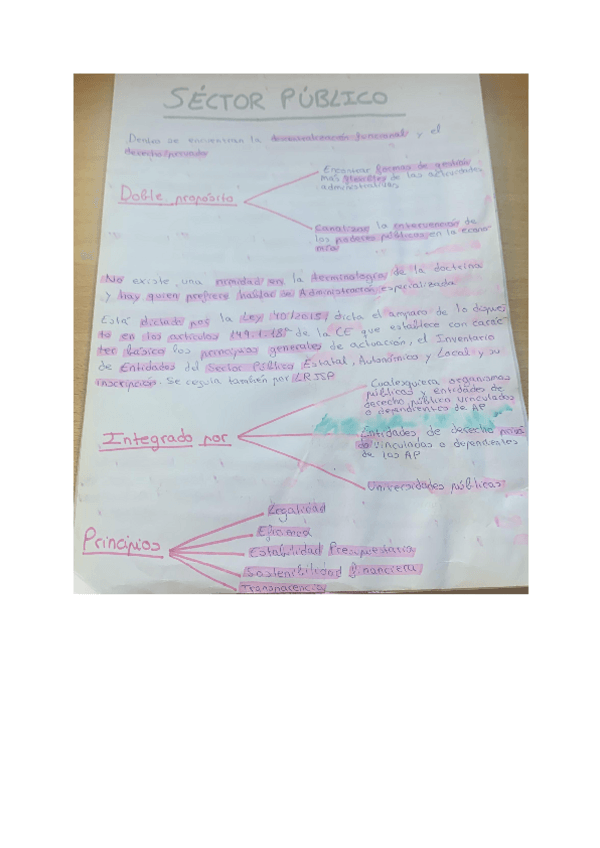 SÉCTOR PÚBLICO
Dentro se encuentran la descentralización funcional y el
derecho privado
Doble propósito
Encontrar formas de gestión
más flexibles de las actividades
administrativas
Canalizar la intervención de
los poderes públicos en la econo-
mía
No existe una unidad en la terminología de la doctrina
y hay quien prefiere hablar de Administración especializada
Está dictado por la Ley 40/2015, dicta el amparo de lo dispues-
to en los artículos 149.1.18ª de la CE que establece con carác-
ter básico los principios generales de actuación, el Inventario
de Entidades del Sector Público Estatal, Autonómico y Local y su
inscripción. Se regula también por LRJSP
Integrado por
Cualesquiera organismos
públicos y entidades de
derecho público vinculados
o dependientes de AP
Entidades de derecho priva-
do vinculadas o dependientes
de las AP
Universidades públicas
Principios
Legalidad
Eficiencia
Estabilidad Presupuestaria
Sostenibilidad financiera
Transparencia